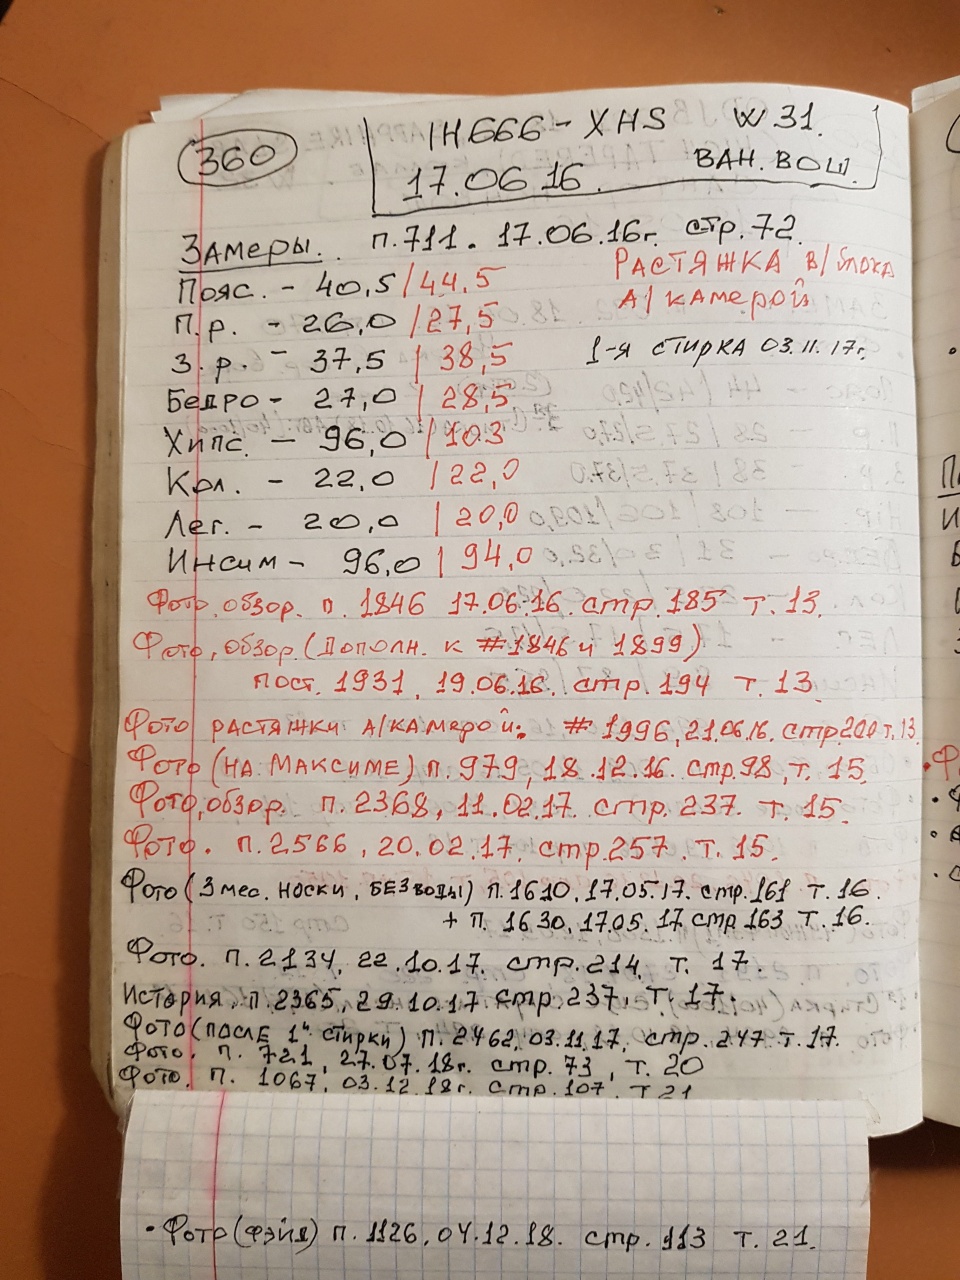 360
IH666-XHS W31.
17.06 16. ВАН. ВОШ.
Замеры. п.711. 17.06.16г. стр.72.
Пояс. - 40,5/44,5
РАСТЯЖКА В/блока
А/камерой
П.р. - 26,0/27,5
З.р. - 37,5/38,5
1-я стирка 03.11.17г.
Бедро - 27,0/28,5
Хипс. - 96,0/103
Кол. - 22,0/22,0
Лег. - 20,0/20,0
Инсим - 96,0/94,0
Фото, обзор. п. 1846 17.06.16. стр.185 т.13.
Фото, обзор. (Дополн. к #1846 и 1899)
пост. 1931, 19.06.16. стр. 194 т.13
Фото растяжки А/камерой: # 1996, 21.06.16. стр.200 т.13.
Фото (НА МАКСИМЕ) п. 979, 18.12.16. стр.98, т. 15.
Фото, обзор. п. 2368, 11.02.17. стр. 237. т. 15.
Фото. п. 2566, 20.02.17. стр.257. т. 15.
Фото (3 мес. носки, БЕЗ воды) п.1610, 17.05.17. стр.161 т. 16.
+ п. 1630, 17.05.17. стр 163 т. 16.
Фото. п. 2134, 22.10.17. стр. 214, т. 17.
История, п. 2365, 29.10.17. стр. 237, т. 17.
Фото (после 1й стирки) п. 2462, 03.11.17, стр. 247 т. 17.
Фото. п. 721, 27.07.18г. стр. 73, т. 20
Фото. п. 1067, 03.12.18г. стр. 107, т 21
• Фото (фэйд) п. 1126, 04.12.18. стр. 113 т. 21.